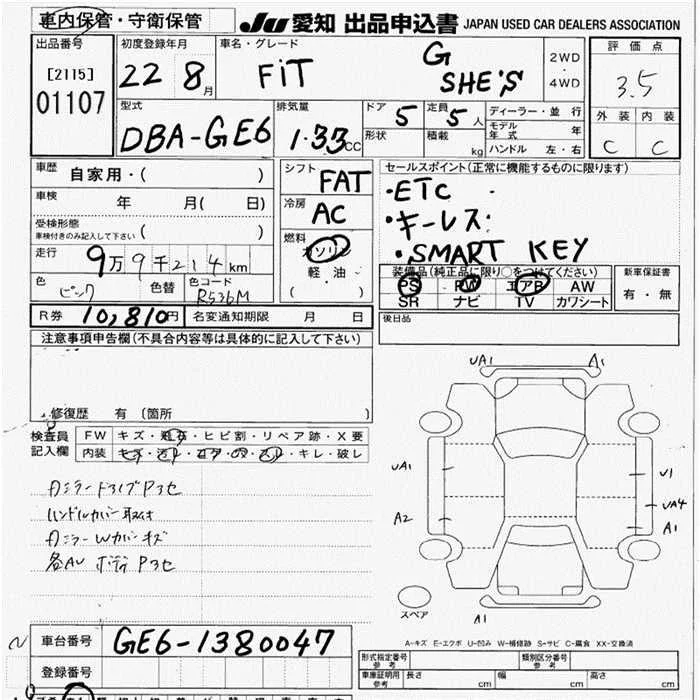 車内保管・守衛保管
JU 愛知 出品申込書 JAPAN USED CAR DEALERS ASSOCIATION
出品番号
[2115]
01107
初度登録年月
22 8月
車名・グレード
FiT G SHE'S
2WD
・
4WD
評価点
3.5
外装 内装
C C
型式
DBA-GE6
排気量
1.33CC
ドア 5
定員 5人
形状
積載 kg
ディーラー・並行
モデル年式 年
ハンドル 左・右
車歴
自家用・( )
車検
年 月( 日)
受検形態
車検付きのみ記入して下さい ( )
走行
9万9千214km
色
ピンク
色替
色コード
R536M
シフト
FAT
冷房
AC
燃料
ガソリン
軽油
( ・ )
セールスポイント(正常に機能するものに限ります)
・ETC
・キーレス
・SMART KEY
装備品(純正品に限り○をつけてください)
PS PW エアB AW
SR ナビ TV カワシート
新車保証書
有・無
R券 10,810円
名変通知期限 月 日
後日品
注意事項申告欄(不具合内容等は具体的に記入して下さい)
修復歴 有 〔箇所 〕
検査員
記入欄
FW キズ・飛石・ヒビ割・リペア跡・X要
内装 キズ・汚れ・コゲ・穴・スレ・キレ・破レ
ハンドルカバー取付
UA1 A1
UA1
A2
U1
UA4
A1
A1
スペア
A-キズ E-エクボ U-凹み W-補修跡 S-サビ C-腐食 XX-交換済
車台番号
GE6-1380047
登録番号
形式指定番号
参考
類別区分番号
参考
車庫証明用
参考
長さ cm
幅 cm
高さ cm